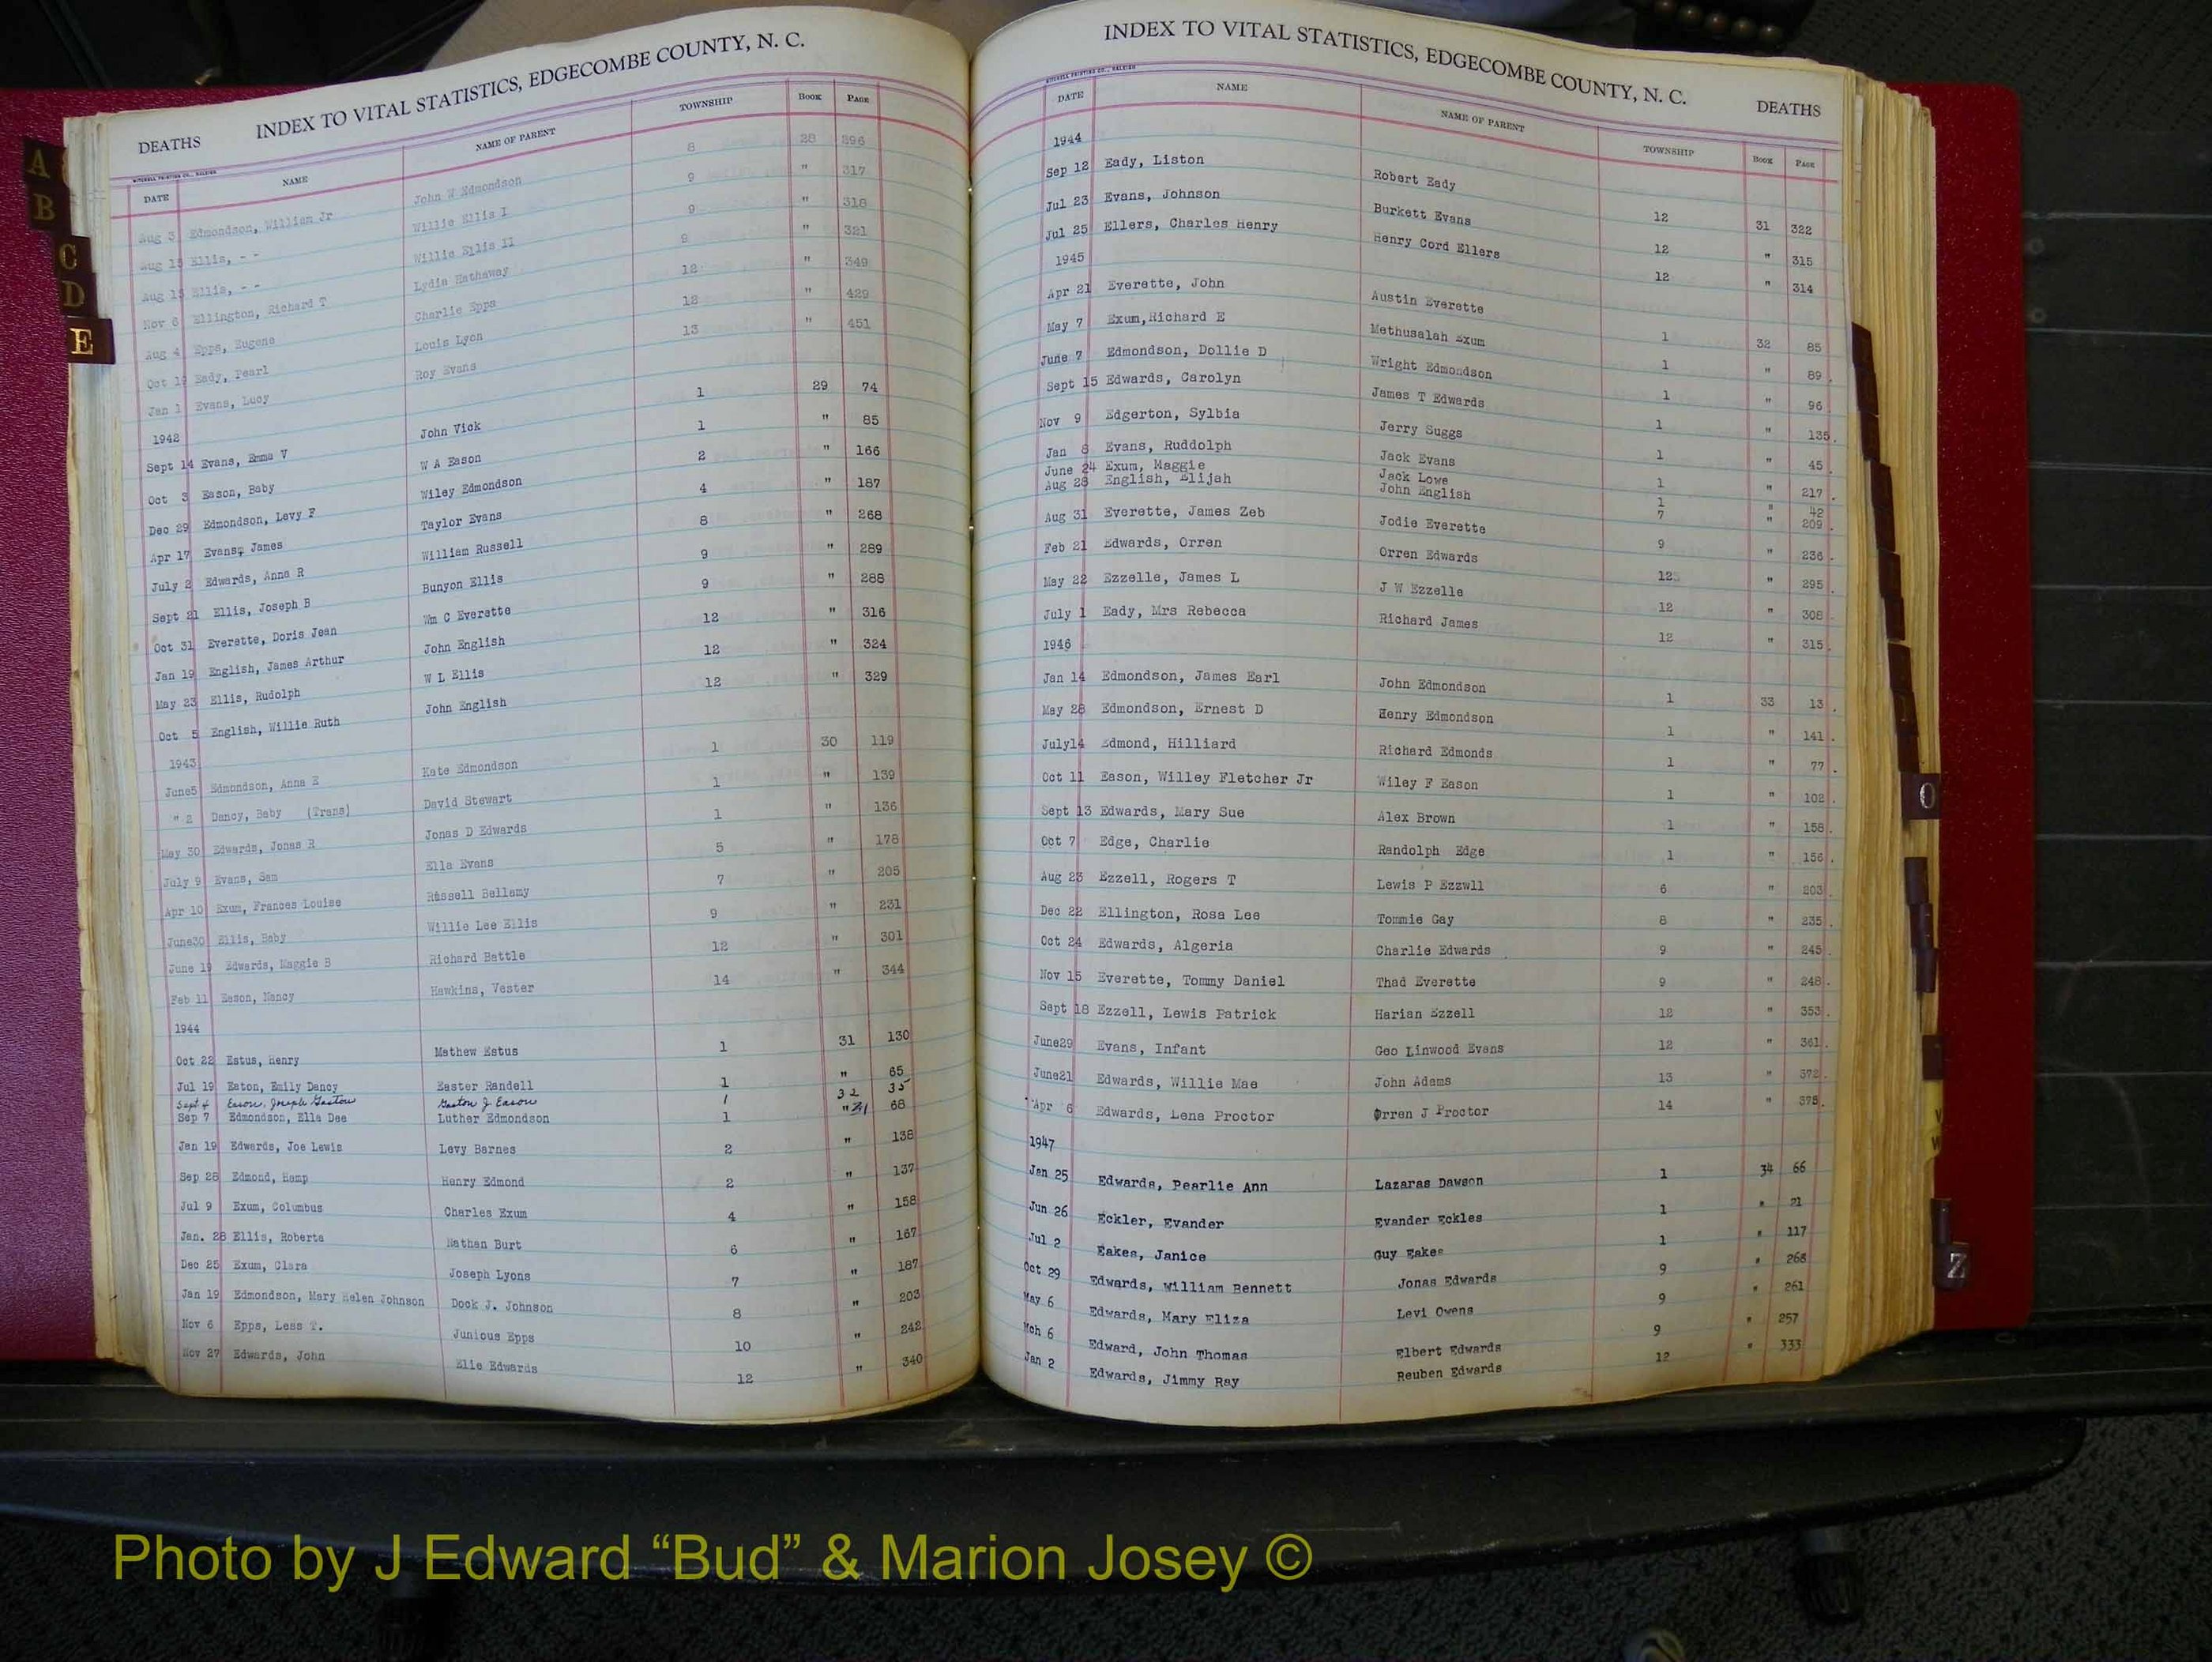 INDEX TO VITAL STATISTICS, EDGECOMBE COUNTY, N. C.
DEATHS
MITCHELL PRINTING CO., RALEIGH
DATE NAME NAME OF PARENT TOWNSHIP BOOK PAGE
Aug 3 Edmondson, William Jr John W Edmondson 8 28 296
Aug 15 Ellis, - - Willie Ellis I 9 " 317
Aug 15 Ellis, - - Willie Ellis II 9 " 318
Nov 6 Ellington, Richard T Lydia Hathaway 9 " 321
Aug 4 Epps, Eugene Charlie Epps 12 " 349
Oct 19 Eady, Pearl Louis Lyon 12 " 429
Jan 1 Evans, Lucy Roy Evans 13 " 451
1942
Sept 14 Evans, Emma V John Vick 1 29 74
Oct 3 Eason, Baby W A Eason 1 " 85
Dec 29 Edmondson, Levy F Wiley Edmondson 2 " 166
Apr 17 Evans, James Taylor Evans 4 " 187
July 2 Edwards, Anna R William Russell 8 " 268
Sept 21 Ellis, Joseph B Bunyon Ellis 9 " 289
Oct 31 Everette, Doris Jean Wm C Everette 9 " 288
Jan 19 English, James Arthur John English 12 " 316
May 23 Ellis, Rudolph W L Ellis 12 " 324
Oct 5 English, Willie Ruth John English 12 " 329
1943
June5 Edmondson, Anna E Kate Edmondson 1 30 119
" 2 Dancy, Baby (Trans) David Stewart 1 " 139
May 30 Edwards, Jonas R Jonas D Edwards 1 " 136
July 9 Evans, Sam Ella Evans 5 " 178
Apr 10 Exum, Frances Louise Russell Bellamy 7 " 205
June30 Ellis, Baby Willie Lee Ellis 9 " 231
June 19 Edwards, Maggie B Richard Battle 12 " 301
Feb 11 Eason, Nancy Hawkins, Vester 14 " 344
1944
Oct 22 Estus, Henry Mathew Estus 1 31 130
Jul 19 Eaton, Emily Dancy Easter Randell 1 " 65
Sept 4 Eason, Joseph Gaston Gaston J Eason 1 32 35
Sep 7 Edmondson, Ella Dee Luther Edmondson 1 " 31 68
Jan 19 Edwards, Joe Lewis Levy Barnes 2 " 138
Sep 28 Edmond, Hemp Henry Edmond 2 " 137
Jul 9 Exum, Columbus Charles Exum 4 " 158
Jan. 28 Ellis, Roberta Nathan Burt 6 " 167
Dec 25 Exum, Clara Joseph Lyons 7 " 187
Jan 19 Edmondson, Mary Helen Johnson Dock J. Johnson 8 " 203
Nov 6 Epps, Less T. Junious Epps 10 " 242
Nov 27 Edwards, John Elie Edwards 12 " 340
INDEX TO VITAL STATISTICS, EDGECOMBE COUNTY, N. C.
DEATHS
MITCHELL PRINTING CO., RALEIGH
DATE NAME NAME OF PARENT TOWNSHIP BOOK PAGE
1944
Sep 12 Eady, Liston Robert Eady 12 31 322
Jul 23 Evans, Johnson Burkett Evans 12 " 315
Jul 25 Ellers, Charles Henry Henry Cord Ellers 12 " 314
1945
Apr 21 Everette, John Austin Everette 1 32 85
May 7 Exum,Richard E Methusalah Exum 1 " 89
June 7 Edmondson, Dollie D Wright Edmondson 1 " 96
Sept 15 Edwards, Carolyn James T Edwards 1 " 135
Nov 9 Edgerton, Sylbia Jerry Suggs 1 " 45
Jan 8 Evans, Ruddolph Jack Evans 1 " 217
June 24 Exum, Maggie Jack Lowe 1 " 42
Aug 28 English, Elijah John English 7 " 209
Aug 31 Everette, James Zeb Jodie Everette 9 " 236
Feb 21 Edwards, Orren Orren Edwards 12 " 295
May 22 Ezzelle, James L J W Ezzelle 12 " 308
July 1 Eady, Mrs Rebecca Richard James 12 " 315
1946
Jan 14 Edmondson, James Earl John Edmondson 1 33 13
May 28 Edmondson, Ernest D Henry Edmondson 1 " 141
July14 Edmond, Hilliard Richard Edmonds 1 " 77
Oct 11 Eason, Willey Fletcher Jr Wiley F Eason 1 " 102
Sept 13 Edwards, Mary Sue Alex Brown 1 " 158
Oct 7 Edge, Charlie Randolph Edge 1 " 156
Aug 23 Ezzell, Rogers T Lewis P Ezzwll 6 " 203
Dec 22 Ellington, Rosa Lee Tommie Gay 8 " 235
Oct 24 Edwards, Algeria Charlie Edwards 9 " 245
Nov 15 Everette, Tommy Daniel Thad Everette 9 " 248
Sept 18 Ezzell, Lewis Patrick Harian Ezzell 12 " 353
June29 Evans, Infant Geo Linwood Evans 12 " 361
June21 Edwards, Willie Mae John Adams 13 " 372
Apr 6 Edwards, Lena Proctor Orren J Proctor 14 " 378
1947
Jan 25 Edwards, Pearlie Ann Lazaras Dawson 1 34 66
Jun 26 Eckler, Evander Evander Eckles 1 " 21
Jul 2 Eakes, Janice Guy Eakes 1 " 117
Oct 29 Edwards, William Bennett Jonas Edwards 9 " 268
May 6 Edwards, Mary Eliza Levi Owens 9 " 261
Mch 6 Edward, John Thomas Elbert Edwards 9 " 257
Jan 2 Edwards, Jimmy Ray Reuben Edwards 12 " 333
A
B
C
D
E
O
V
W
Z
Photo by J Edward “Bud” & Marion Josey ©